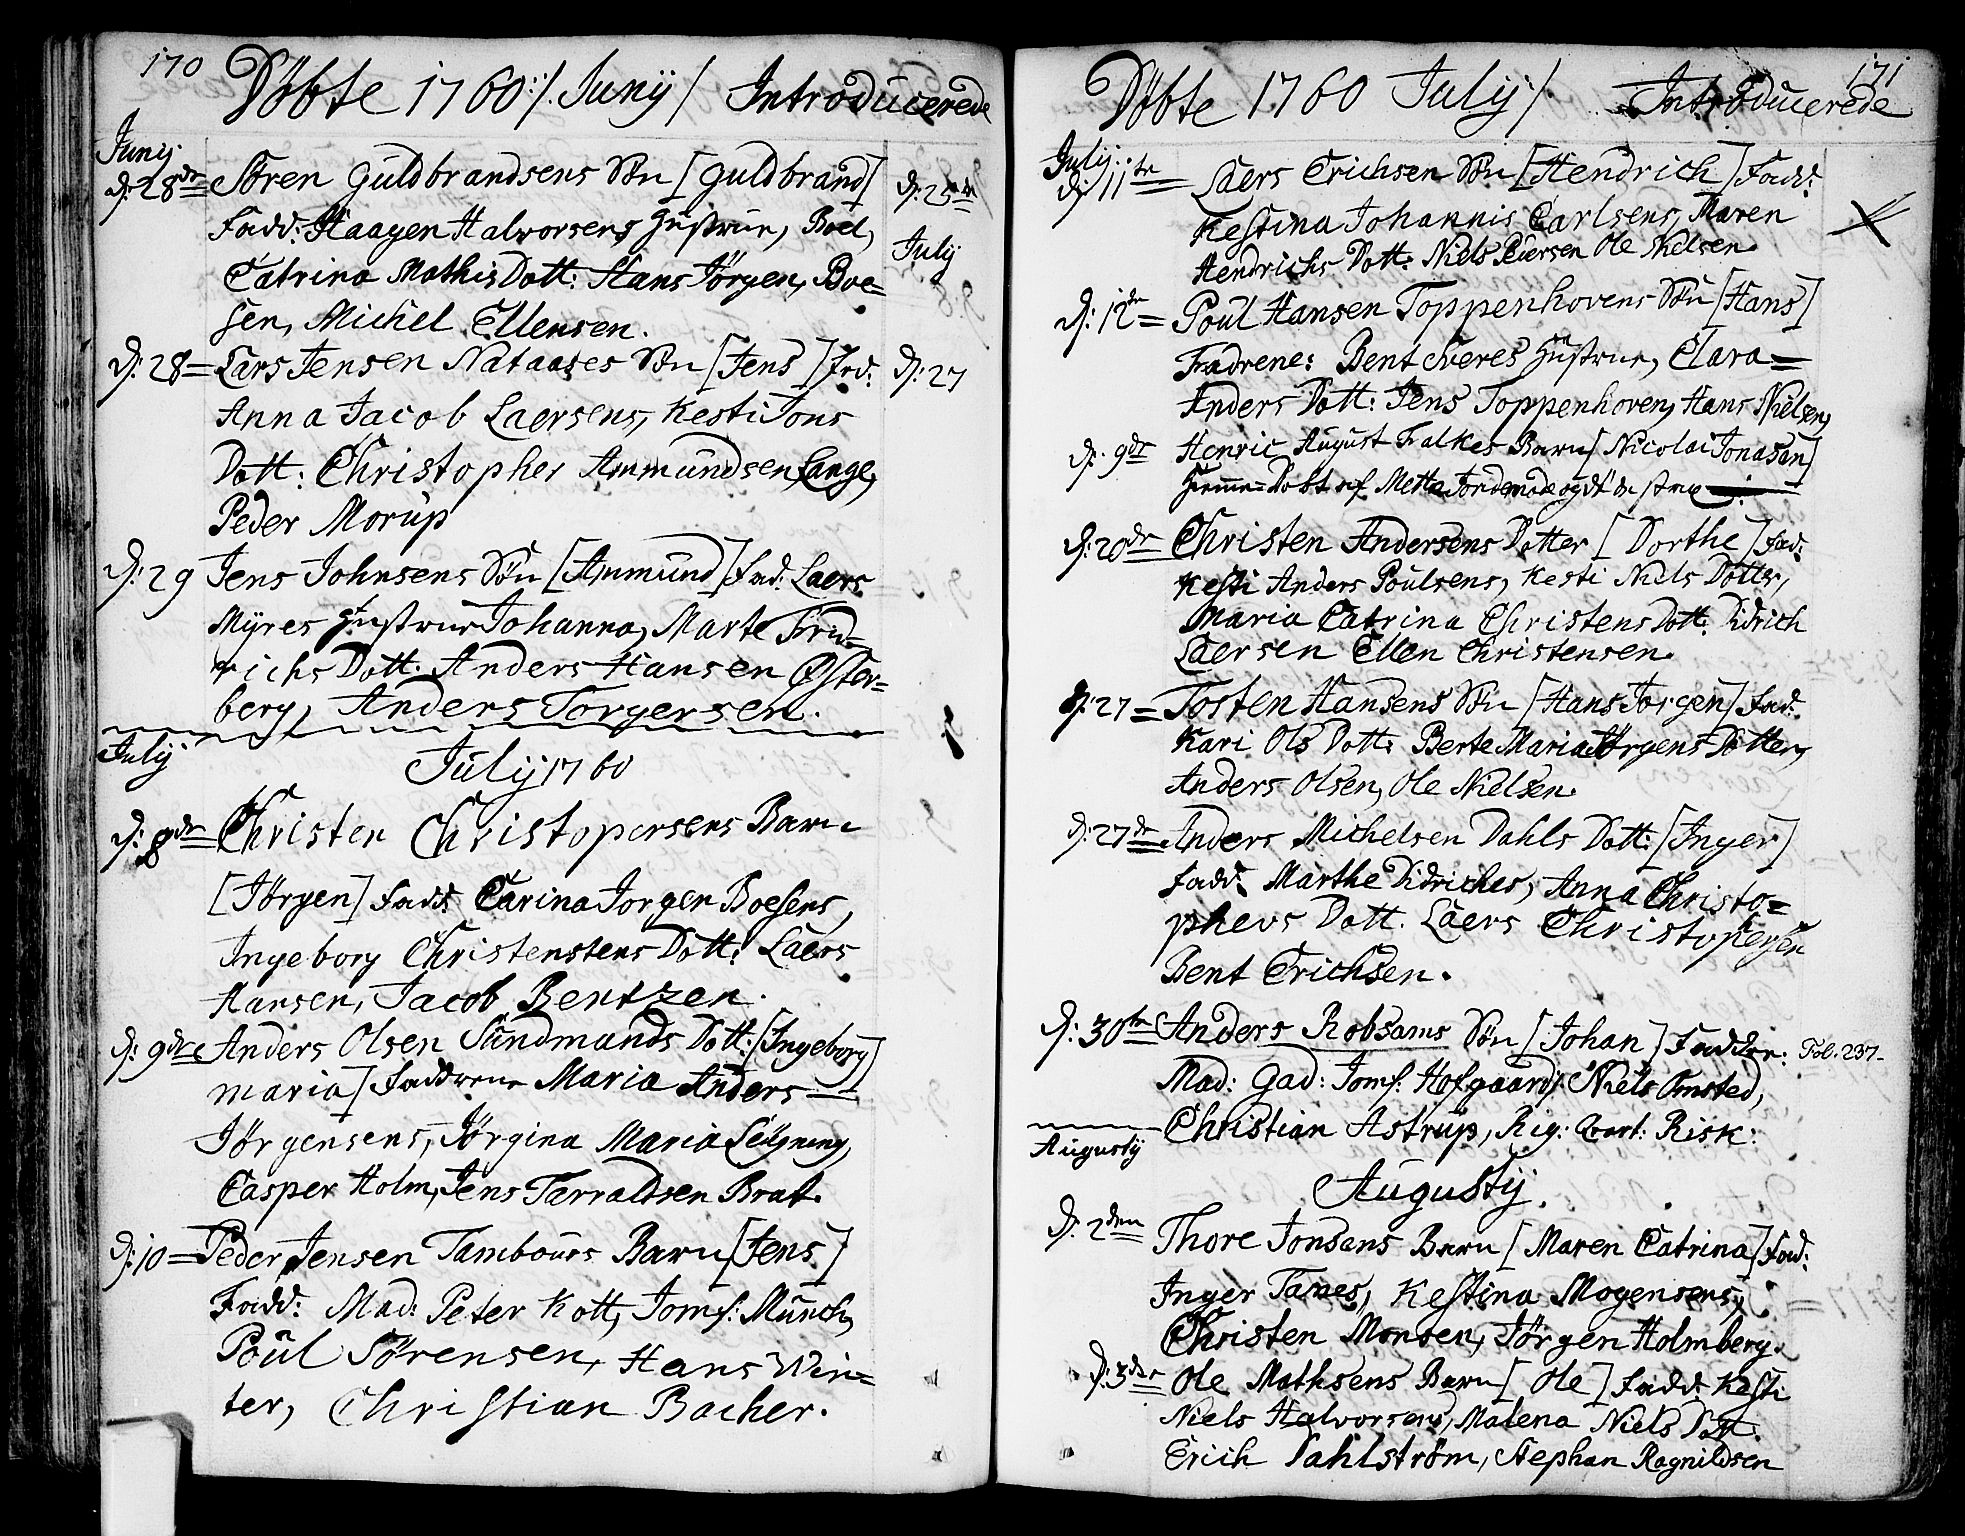 170
Döbte 1760:/. Junÿ / Introducerede
Junÿ.
d: 28de Sören Guldbrandsens Sön [Guldbrand] d: 25de
Fadd: Haagen Halvorsens Hustrue, Boel, July
Catrina MathisDott: Hans Jörgen, Boe=
sen, Michel Ellensen.
d: 28= Lars Jensen Nataases Sön [Jens] Fad: d: 27
Anna Jacob Laersens, Kesti Jons
Dott: Christopher Ammundsen Lange,
Peder Morup
d: 29 Jens Johnsens Sön [Ammund] Fad: Laers
Myres Hustrue Johanna, Marte Frid=
richs Dott. Anders Hansen Öster=
berg, Anders Torgersen.
Julÿ
Julÿ 1760
d: 8de Christen Christopersens Barn
[Jörgen] Fadd: Carina Jorgen Boesens,
Ingeborg Christenstens Dott: Laers
Hansen, Jacob Bentzen.
d: 9de Anders Olsen Sundmands Dott: [Ingeborg
maria] Faddrene Maria Anders
Jörgensens, Jörgina Maria
Casper Holm, Jens Tarraldsen Brat.
d: 10= Peder Jensen Tambours Barn [Jens]
Fadd: Mad: Peter Kott, Jomf: Munch,
Poul Sörensen, Hans Win=
ter, Christian Bacher.
171
Döbte 1760 Julÿ / Introducerede
Julÿ.
d: 11te Laers Erichsen Sön [Hendrich] Fadd:
Kestina Johannis Carlsens, Maren
Hendrichs Dott: Niels Ole Nielsen.
d: 12de Poul Hansen Toppenhovens Sön [Hans]
Fadrene: Bent Sveres Hustrue, Clara=
Anders Dott: Jens Toppenhoven, Hans Nielsen,
d. 9de Henric August Falkes Barn [Nicolai Jonasan]
Hiemme=Döbt af Mette Jordemoder
d: 20de Christen Andersens Dotter [Dorthe] Fad:
Kesti Anders Poulsens, Kesti Niels Dotter,
Maria Catrina Christens Dott: Didrich
Laersen Ellen Christensen.
d: 27= Tosten Hansens Sön [Hans Jorgen] Fad:
Kari Ols Dott: Berte Maria Jörgens Dotter,
Anders Olsen, Ole Nielsen.
d: 27de Anders Michelsen Dahls Dott: [Inger]
Fadd: Marthe Didriches, Anna Christo=
phers Dott. Laers Christophersen
Bent Erichsen.
d: 30te Anders Robsams Sön [Johan] Fadder: Fol. 237-
Mad: Gad: Jomf: Hofgaard, Niels Omsted,
Christian Astrup, Rig: Qvart: Risk:
Augustÿ
Augustÿ.
d. 2den Thore Jonsans Barn [Maren Catrina] Fad:
Inger Tanes, Kestina Mogensens,
Christen Monsen, Jörgen Holmberg.
d: 3de Ole Mathsens Barn [Ole] Fadd: Kesti
Niels Halvorsens, Malena Niels Dott.
Erich Dahlström, Stephan Ragnildsen